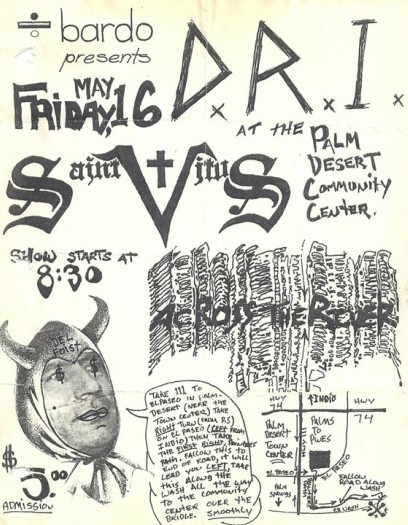 ÷ bardo
presents
FRIDAY, MAY 16
D.R.I.
AT THE PALM
DESERT
COMMUNITY
CENTER.
Saint Vitus
SHOW STARTS AT
8:30
ACROSS THE RIVER
$
5.00
ADMISSION
TAKE 111 TO
EL PASEO IN PALM-
DESERT (NEAR THE
TOWN CENTER) TAKE
RIGHT TURN (FROM P.S)
ON EL PASEO (LEFT FROM
INDIO) THEN TAKE
THE FIRST RIGHT,
PATH. FALLOW THIS TO
END OF ROAD, IT WILL
LEAD YOU LEFT, TAKE
THIS ALONG THE
WASH ALL THE WAY
TO THE COMMUNITY
CENTER OVER THE
BRIDGE. SMOOTHLY
HWY
74
↑INDIO
HWY
74
PALM
DESERT
TOWN
CENTER
PALMS
TO
PINES
EL PASEO
EL PASEO
PALM
SPRINGS
FALLOW
ROAD ALONG
WASH!